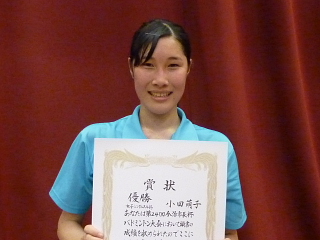 賞状
優勝
小田萌子
あなたは第24回今治市長杯
バドミントン大会において頭書の
成績を収められたのでここに